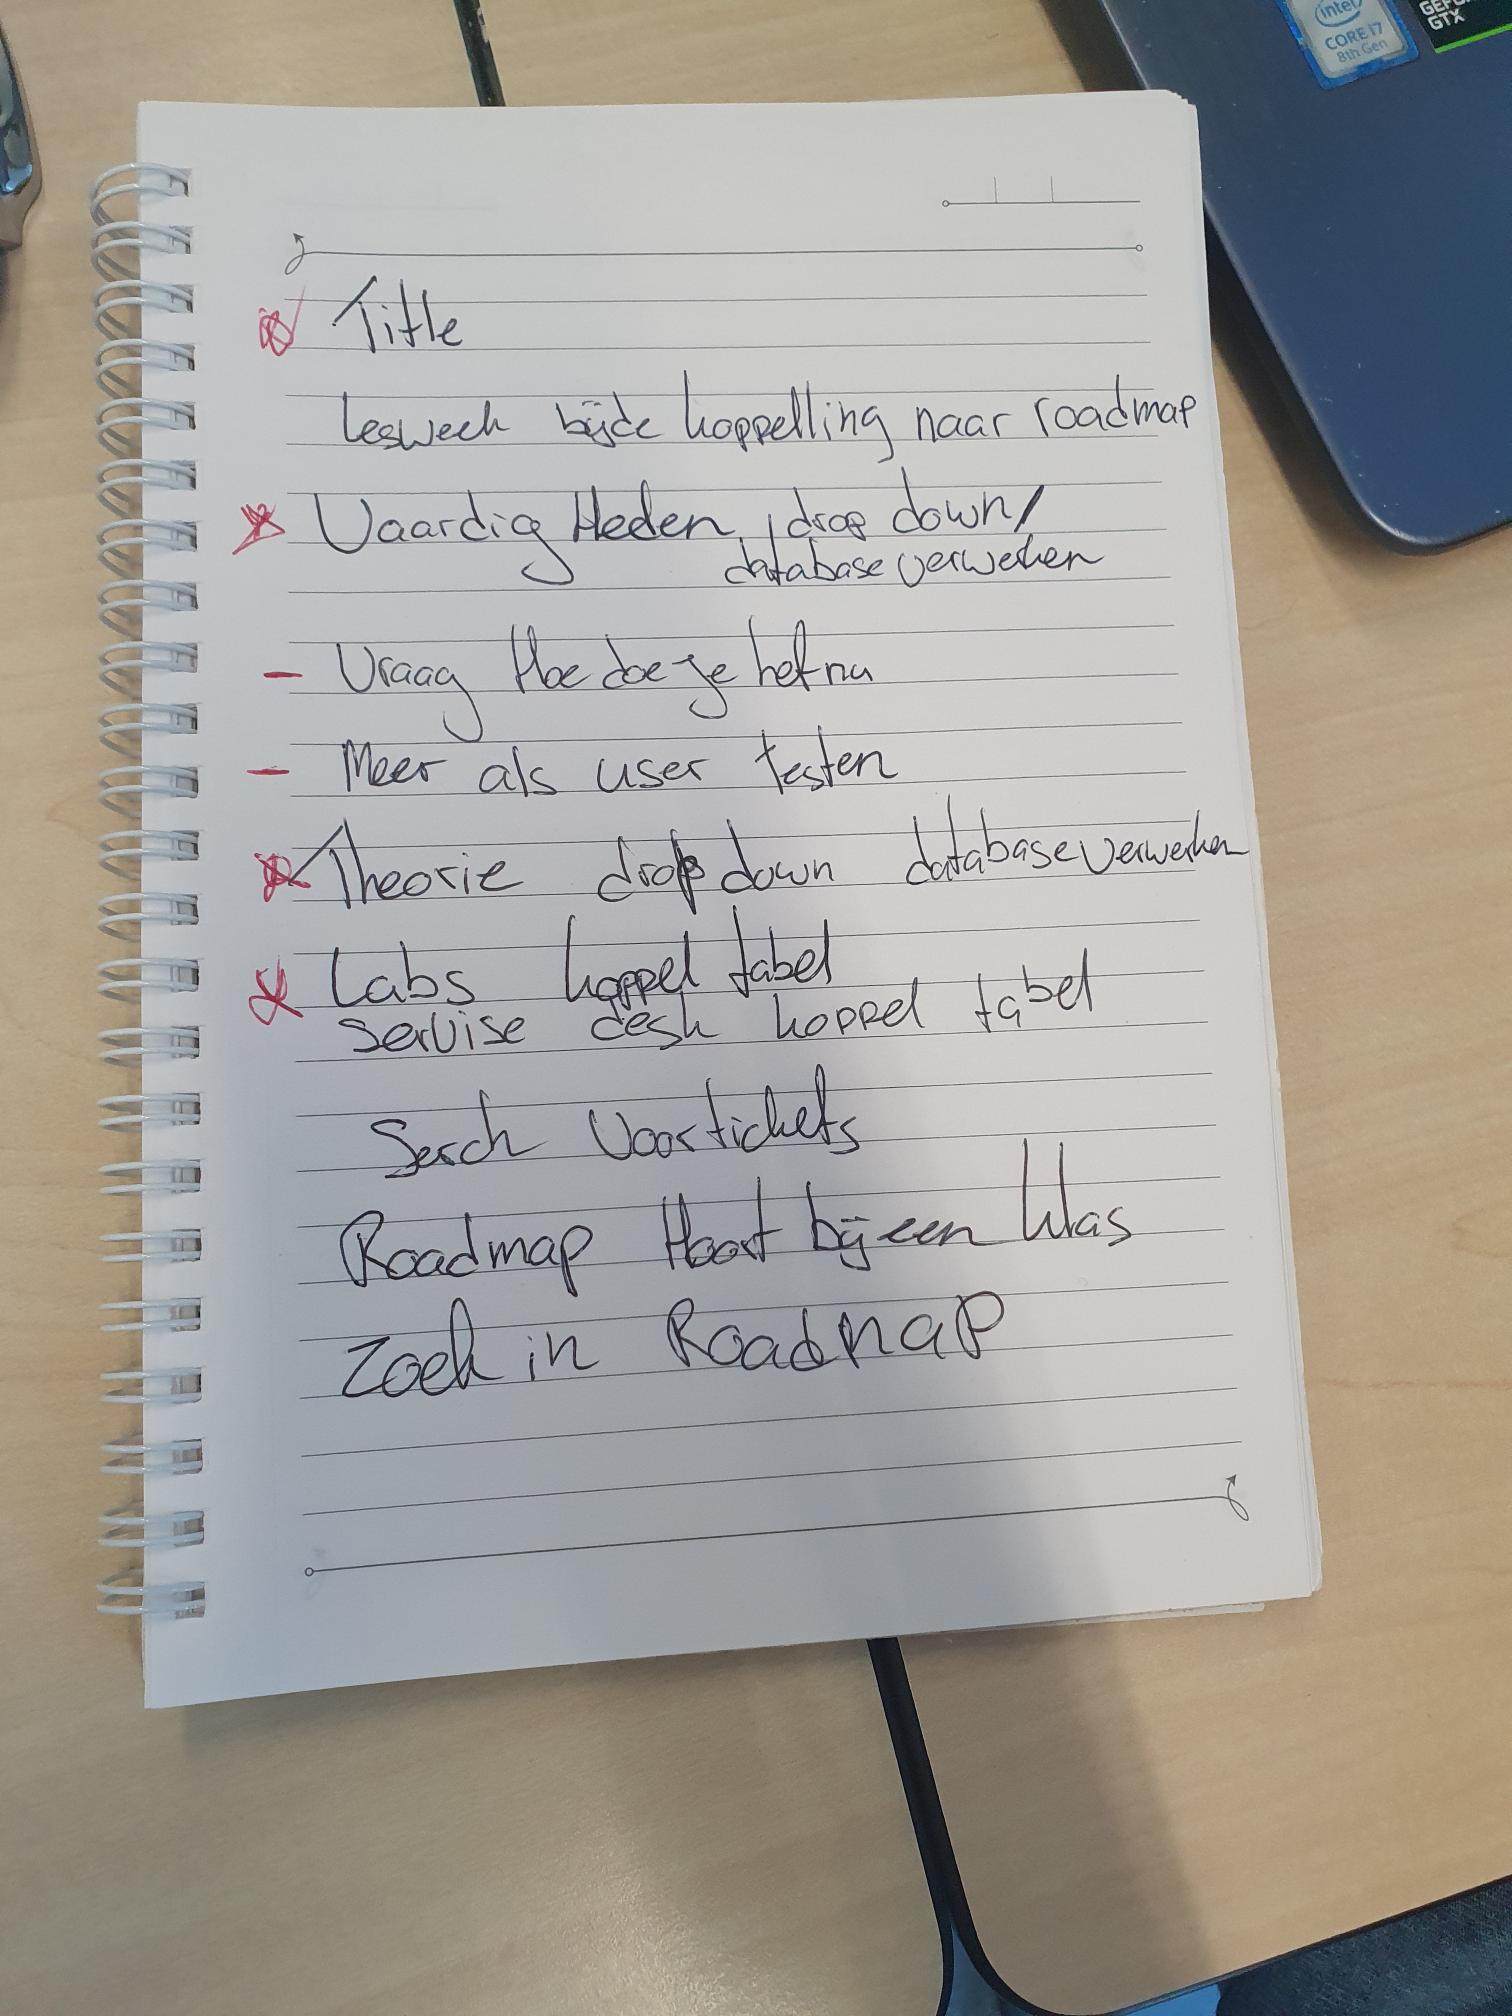 intel
CORE i7
8th Gen
GTX
Title
Lesweek bijde koppelling naar roadmap
Vaardig Heden, drop down/
database verwerken
- Vraag Hoe doe je het nu
- Meer als user testen
Theorie drop down database verwerken
Labs koppel tabel
Servise desk koppel tabel
Serch voor tickets
Roadmap Hoort bij een klas
Zoek in Roadmap